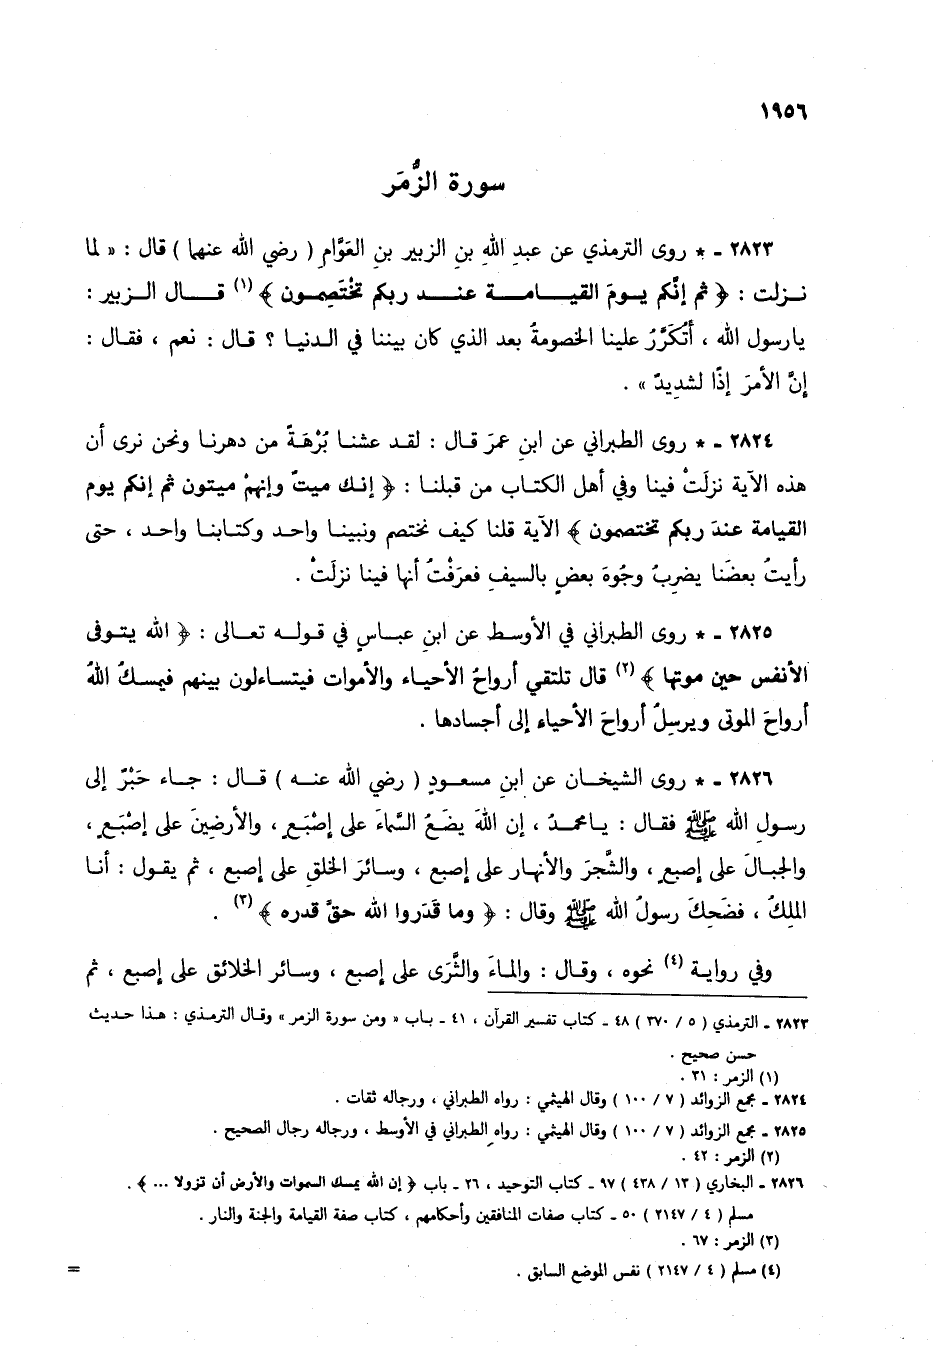 ١٩٥٦
سورة الزُّمَر
٢٨٢٣ ـ * روى الترمذي عن عبدِ اللهِ بنِ الزبير بنِ العَوَّامِ ( رضي الله عنهما ) قال : « لما
نـزلت : ﴿ ثم إنَّكم يـومَ القيـامـة عنـد ربكم تَخْتَصِمـون ﴾ (١) قـال الـزبير :
يارسول الله ، أَتُكَرَّرُ علينا الخصومةُ بعد الذي كان بيننا في الـدنيـا ؟ قـال : نعم ، فقـال :
إنَّ الأمرَ إذًا لشديدٌ » .
٢٨٢٤ ـ * روى الطبراني عن ابنِ عمرَ قـال : لقـد عشنـا بُرْهَـةً من دهرنـا ونحن نرى أن
هذه الآية نزلَتْ فينا وفي أهل الكتـاب من قبلنـا : ﴿ إنـك ميتٌ وإنهمْ ميتون ثم إنكم يوم
القيامة عندَ ربكم تختصمون ﴾ الآية قلنا كيف نختصم ونبينـا واحـد وكتـابنـا واحـد ، حتى
رأيتُ بعضَنا يضربُ وجُوهَ بعضٍ بالسيفِ فعرَفْتُ أنها فينا نزلَتْ .
٢٨٢٥ ـ * روى الطبراني في الأوسطِ عن ابنِ عبـاسٍ في قـولـه تعـالى : ﴿ الله يتـوفى
الأنفس حين موتها ﴾ (٢) قال تلتقي أرواحُ الأحيـاء والأموات فيتسـاءلون بينهم فيمسـكُ اللهُ
أرواحَ الموتى ويرسلُ أرواحَ الأحياء إلى أجسادها .
٢٨٢٦ ـ * روى الشيخـان عن ابنِ مسعـودٍ ( رضي الله عنـه ) قـال : جـاء حَبْرٌ إلى
رسولِ الله ﷺ فقـال : يـامحمـدُ ، إن اللهَ يضَعُ السَّماءَ على إصْبَعٍ ، والأرضِينَ على إصْبَعٍ ،
والجبـالَ على إصبعٍ ، والشَّجرَ والأنهـار على إصبع ، وسـائرَ الخلقِ على إصبع ، ثم يقـول : أنـا
الملِكُ ، فضَحِكَ رسولُ الله ﷺ وقال : ﴿ وما قَدَروا الله حقَّ قدره ﴾ (٣) .
وفي روايـة (٤) نحوه ، وقـال : والمـاءَ والثَّرَى على إصبع ، وسـائر الخلائق على إصبع ، ثم
٢٨٢٣ ـ الترمذي ( ٥ / ٣٧٠ ) ٤٨ ـ كتاب تفسير القرآن ، ٤١ ـ بـاب « ومن سورة الزمر » وقال الترمـذي : هـذا حـديث
حسن صحيح .
(١) الزمر : ٣١ .
٢٨٢٤ ـ مجمع الزوائد ( ٧ / ١٠٠ ) وقال الهيثمي : رواه الطبراني ، ورجاله ثقات .
٢٨٢٥ ـ مجمع الزوائد ( ٧ / ١٠٠ ) وقال الهيثمي : رواه الطبراني في الأوسط ، ورجاله رجال الصحيح .
(٢) الزمر : ٤٢ .
٢٨٢٦ ـ البخاري ( ١٣ / ٤٣٨ ) ٩٧ ـ كتاب التوحيد ، ٢٦ ـ باب ﴿ إن الله يمسك السموات والأرض أن تزولا ... ﴾ .
مسلم ( ٤ / ٢١٤٧ ) ٥٠ ـ كتاب صفات المنافقين وأحكامهم ، كتاب صفة القيامة والجنة والنار .
(٣) الزمر : ٦٧ .
(٤) مسلم ( ٤ / ٢١٤٧ ) نفس الموضع السابق .
=